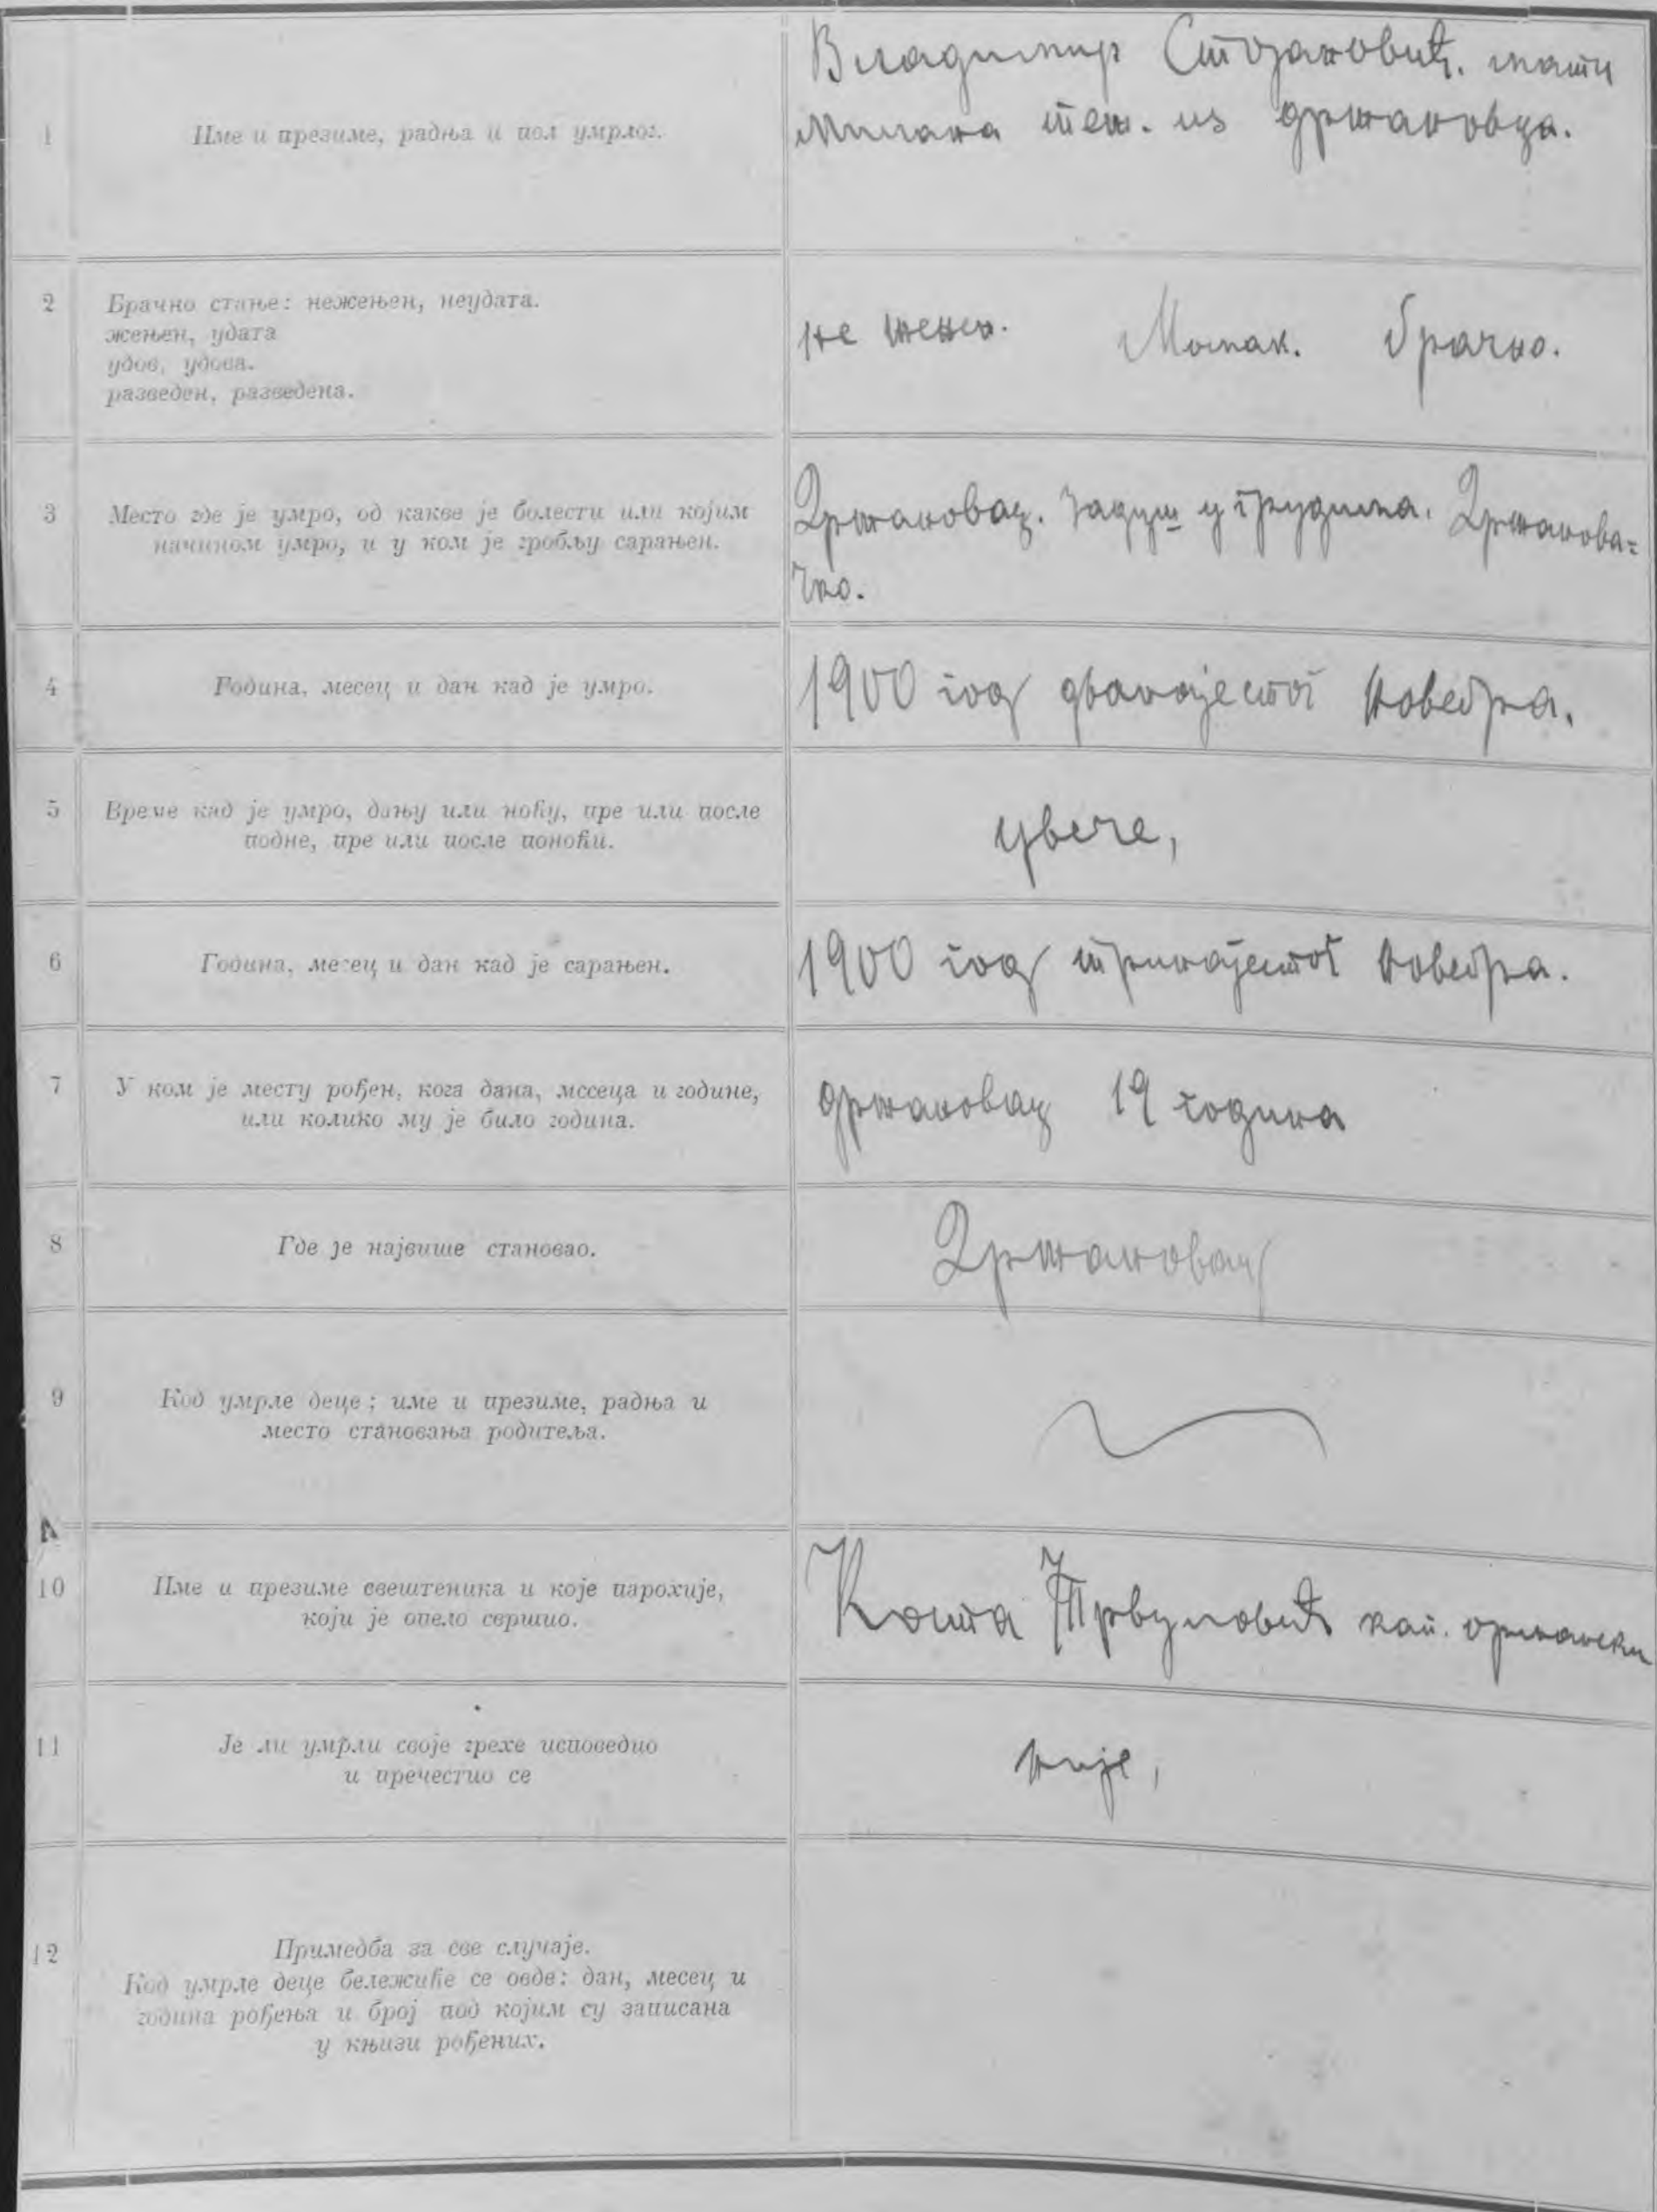 1
Име и презиме, радња и пол умрлог.
Владимир Стојановић. мати
Милана теж. из држановца.
2
Брачно стање: нежењен, неудата.
жењен, удата
удов, удова.
разведен, разведена.
не жењен. Момак. брачно.
3
Место где је умро, од какве је болести или којим
начином умро, и у ком је гробљу сарањен.
Држановац. Задух у грудима. Држанова=
чко.
4
Година, месец и дан кад је умро.
1900 год дванајестог Новебра.
5
Време кад је умро, дању или ноћу, пре или после
подне, пре или после поноћи.
увече,
6
Година, месец и дан кад је сарањен.
1900 год тринајестог Новебра.
7
У ком је месту рођен, кога дана, месеца и године,
или колико му је било година.
држановац 19 година
8
Где је највише становао.
Држановац
9
Код умрле деце; име и презиме, радња и
место становања родитеља.
10
Име и презиме свештеника и које парохије,
који је опело свршио.
Коста Трвуловић кап.
11
Је ли умрли своје грехе исповедио
и пречестио се
није,
12
Примедба за све случаје.
Код умрле деце бележиће се овде: дан, месец и
година рођења и број под којим су записана
у књизи рођених.